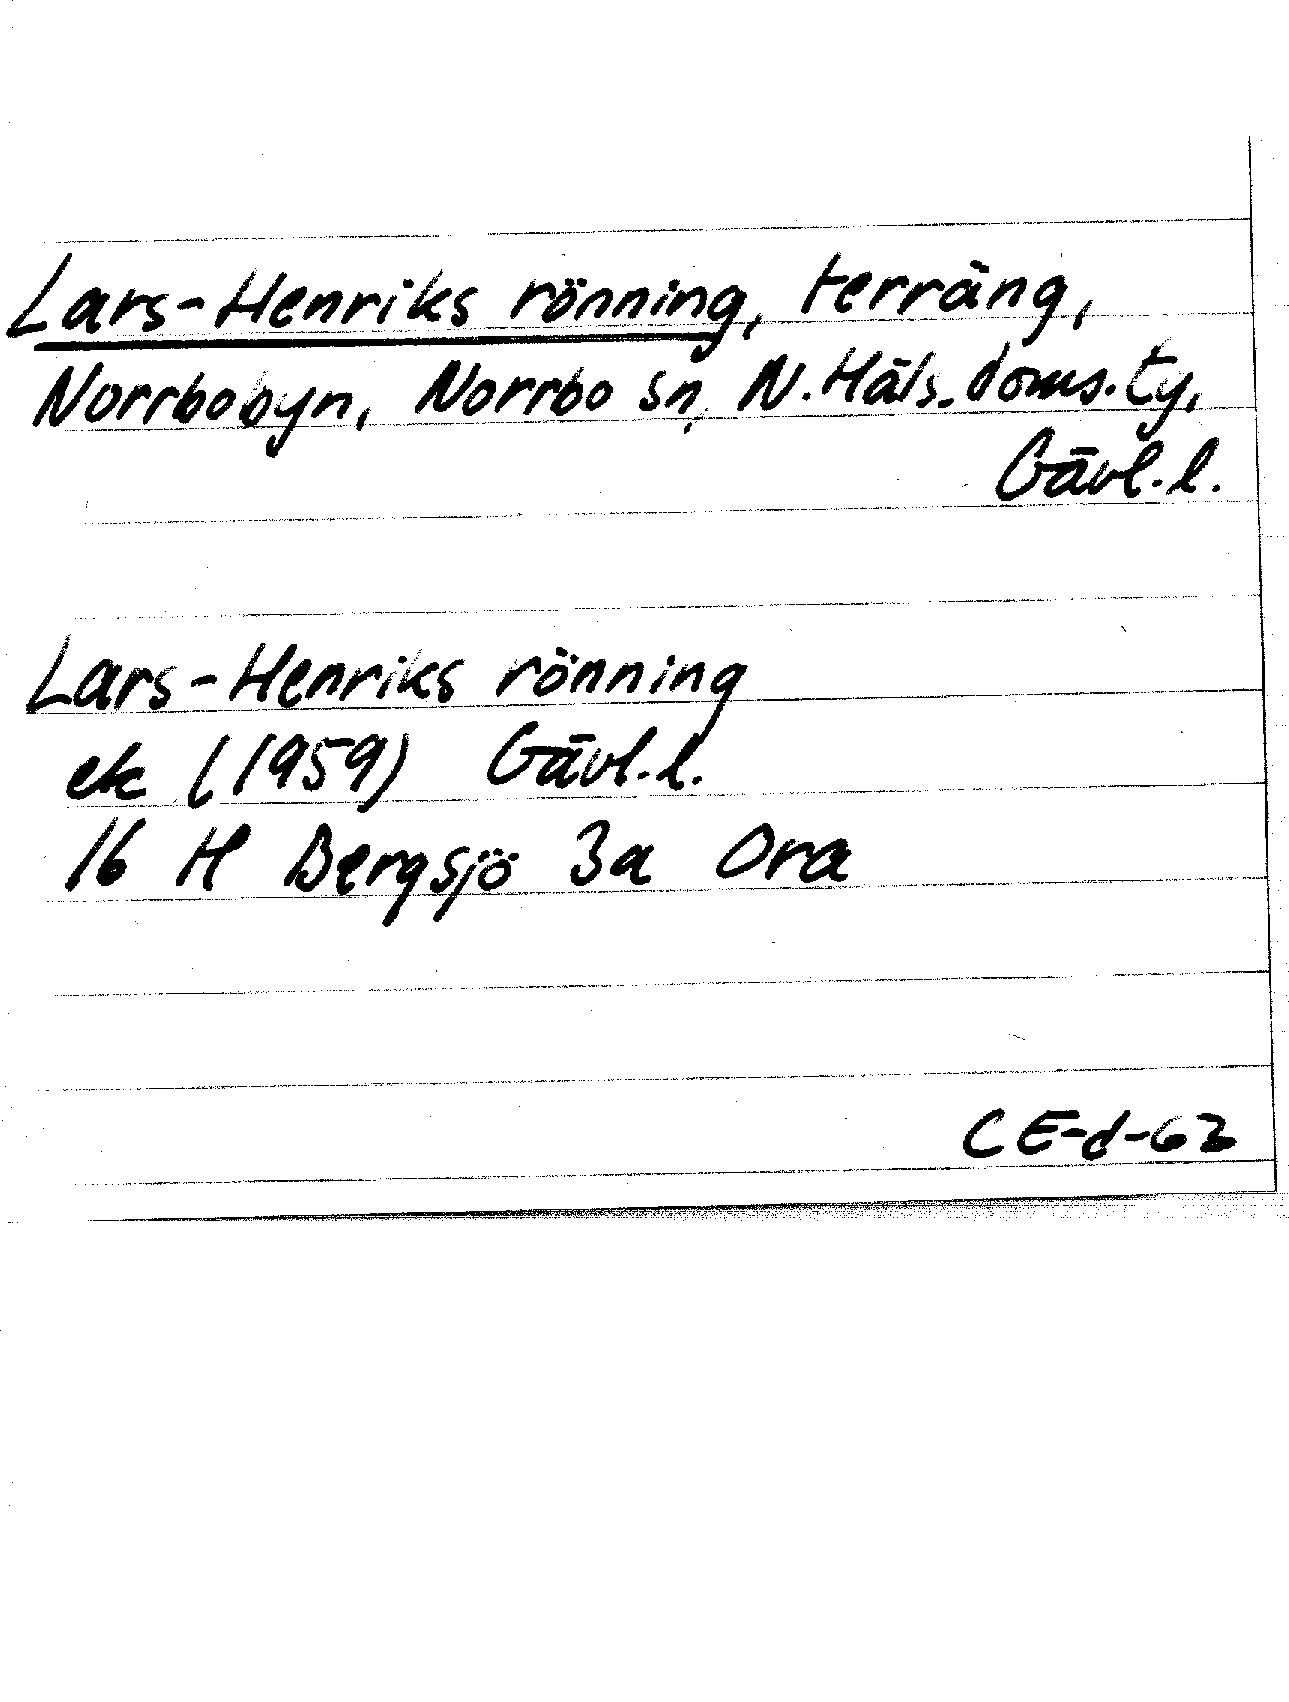 Lars-Henriks rönning, terräng,
Norrbobyn, Norrbo sn, N. Häls. doms. ty,
Gävl. l.
Lars-Henriks rönning
ek (1959) Gävl. l.
16 H Bergsjö 3a Ora
CE-d-63